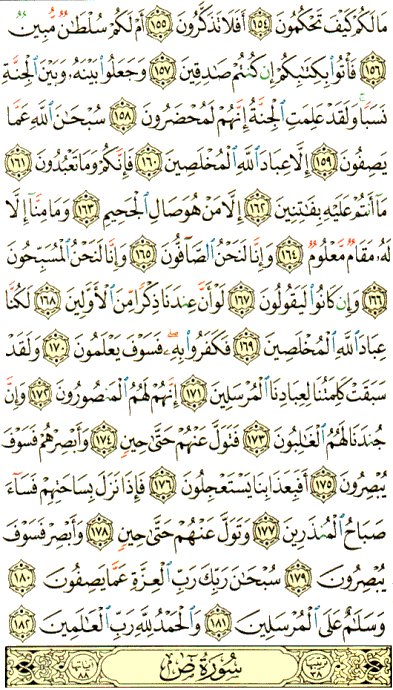 مَا لَكُمْ كَيْفَ تَحْكُمُونَ ١٥٤ أَفَلَا تَذَكَّرُونَ ١٥٥ أَمْ لَكُمْ سُلْطَـٰنٌ مُّبِينٌ
١٥٦ فَأْتُوا۟ بِكِتَـٰبِكُمْ إِن كُنتُمْ صَـٰدِقِينَ ١٥٧ وَجَعَلُوا۟ بَيْنَهُۥ وَبَيْنَ ٱلْجِنَّةِ
نَسَبًا ۚ وَلَقَدْ عَلِمَتِ ٱلْجِنَّةُ إِنَّهُمْ لَمُحْضَرُونَ ١٥٨ سُبْحَـٰنَ ٱللَّهِ عَمَّا
يَصِفُونَ ١٥٩ إِلَّا عِبَادَ ٱللَّهِ ٱلْمُخْلَصِينَ ١٦٠ فَإِنَّكُمْ وَمَا تَعْبُدُونَ ١٦١
مَآ أَنتُمْ عَلَيْهِ بِفَـٰتِنِينَ ١٦٢ إِلَّا مَنْ هُوَ صَالِ ٱلْجَحِيمِ ١٦٣ وَمَا مِنَّآ إِلَّا
لَهُۥ مَقَامٌ مَّعْلُومٌ ١٦٤ وَإِنَّا لَنَحْنُ ٱلصَّآفُّونَ ١٦٥ وَإِنَّا لَنَحْنُ ٱلْمُسَبِّحُونَ
١٦٦ وَإِن كَانُوا۟ لَيَقُولُونَ ١٦٧ لَوْ أَنَّ عِندَنَا ذِكْرًا مِّنَ ٱلْأَوَّلِينَ ١٦٨ لَكُنَّا
عِبَادَ ٱللَّهِ ٱلْمُخْلَصِينَ ١٦٩ فَكَفَرُوا۟ بِهِۦ ۖ فَسَوْفَ يَعْلَمُونَ ١٧٠ وَلَقَدْ
سَبَقَتْ كَلِمَتُنَا لِعِبَادِنَا ٱلْمُرْسَلِينَ ١٧١ إِنَّهُمْ لَهُمُ ٱلْمَنصُورُونَ ١٧٢ وَإِنَّ
جُندَنَا لَهُمُ ٱلْغَـٰلِبُونَ ١٧٣ فَتَوَلَّ عَنْهُمْ حَتَّىٰ حِينٍ ١٧٤ وَأَبْصِرْهُمْ فَسَوْفَ
يُبْصِرُونَ ١٧٥ أَفَبِعَذَابِنَا يَسْتَعْجِلُونَ ١٧٦ فَإِذَا نَزَلَ بِسَاحَتِهِمْ فَسَآءَ
صَبَاحُ ٱلْمُنذَرِينَ ١٧٧ وَتَوَلَّ عَنْهُمْ حَتَّىٰ حِينٍ ١٧٨ وَأَبْصِرْ فَسَوْفَ
يُبْصِرُونَ ١٧٩ سُبْحَـٰنَ رَبِّكَ رَبِّ ٱلْعِزَّةِ عَمَّا يَصِفُونَ ١٨٠
وَسَلَـٰمٌ عَلَى ٱلْمُرْسَلِينَ ١٨١ وَٱلْحَمْدُ لِلَّهِ رَبِّ ٱلْعَـٰلَمِينَ ١٨٢
ترتيبها ٣٨ سُورَةُ صٓ آياتها ٨٨